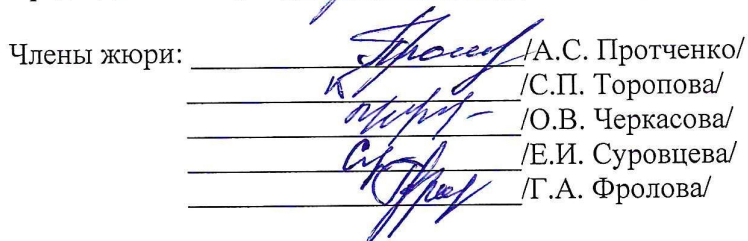 Члены жюри: /А.С. Протченко/
/С.П. Торопова/
/О.В. Черкасова/
/Е.И. Суровцева/
/Г.А. Фролова/